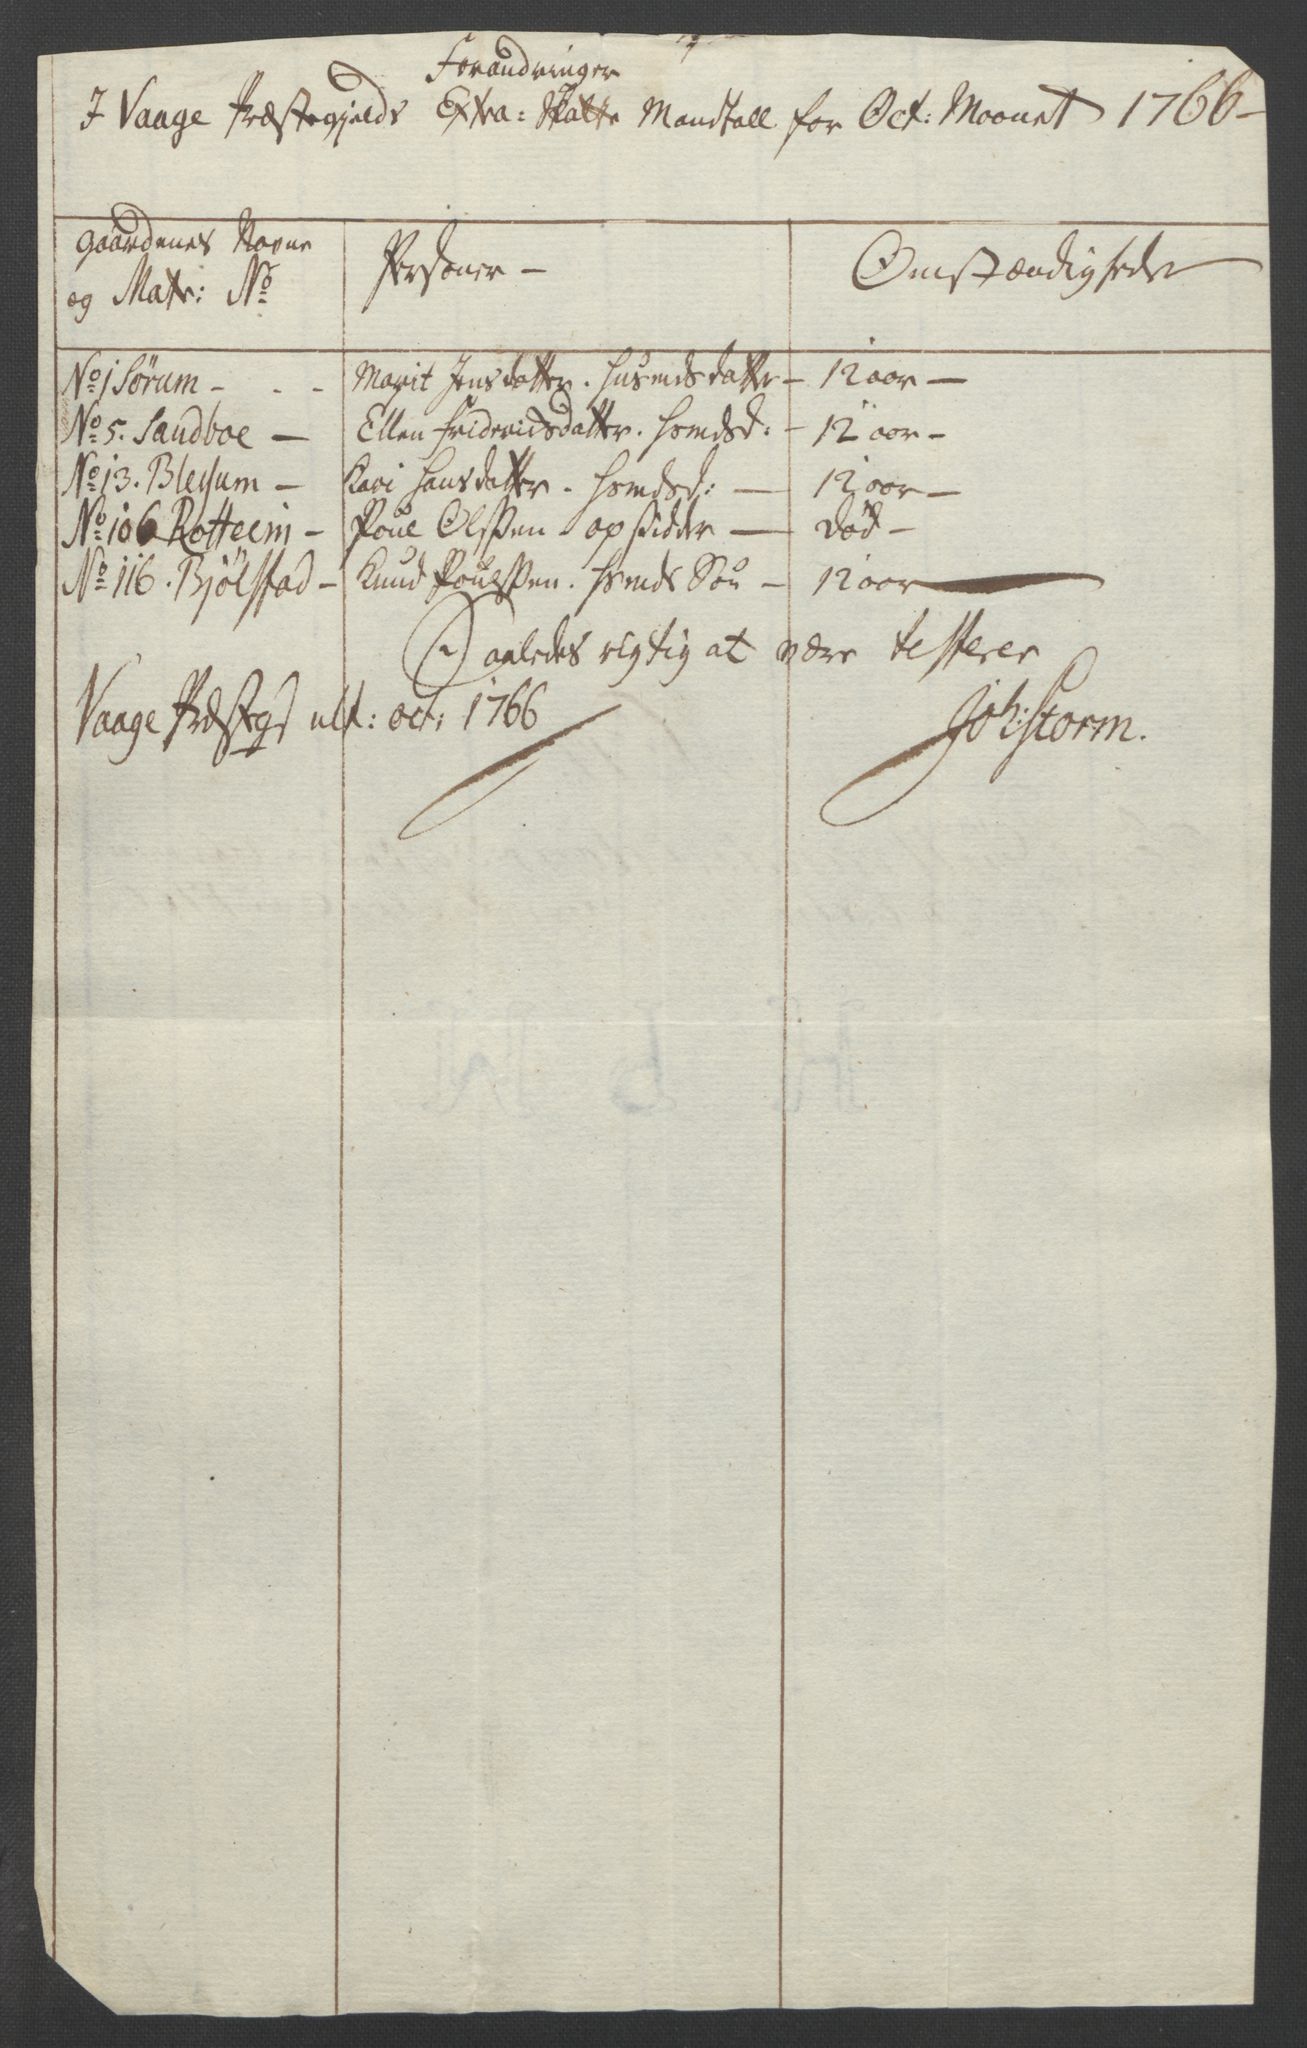 Forandringer
I Vaage Præstegjelds Extra: Skatte Mandtall for Oct: Maanet 1766 –
Gaardenes Navne
og Matr: No
Personer –
Omstændigheder
No 1 Sörum - - - Marit Jensdatter. Husmds datter – 12 aar –
No 5. Sandboe – Ellen Fridericsdatter. Hsmdsd: – 12 aar –
No 13. Blessum – Kari Hansdatter. Hsmdsd: – 12 aar –
No 106 Rotteem – Poul Olssen. opsidder – død –
No 116. Bjölstad – Knud Poulssen. Hsmds Sön – 12 aar –
Saaledes rigtig at være testerer
Vaage Præstgd ult: oct: 1766
Joh: Storm.